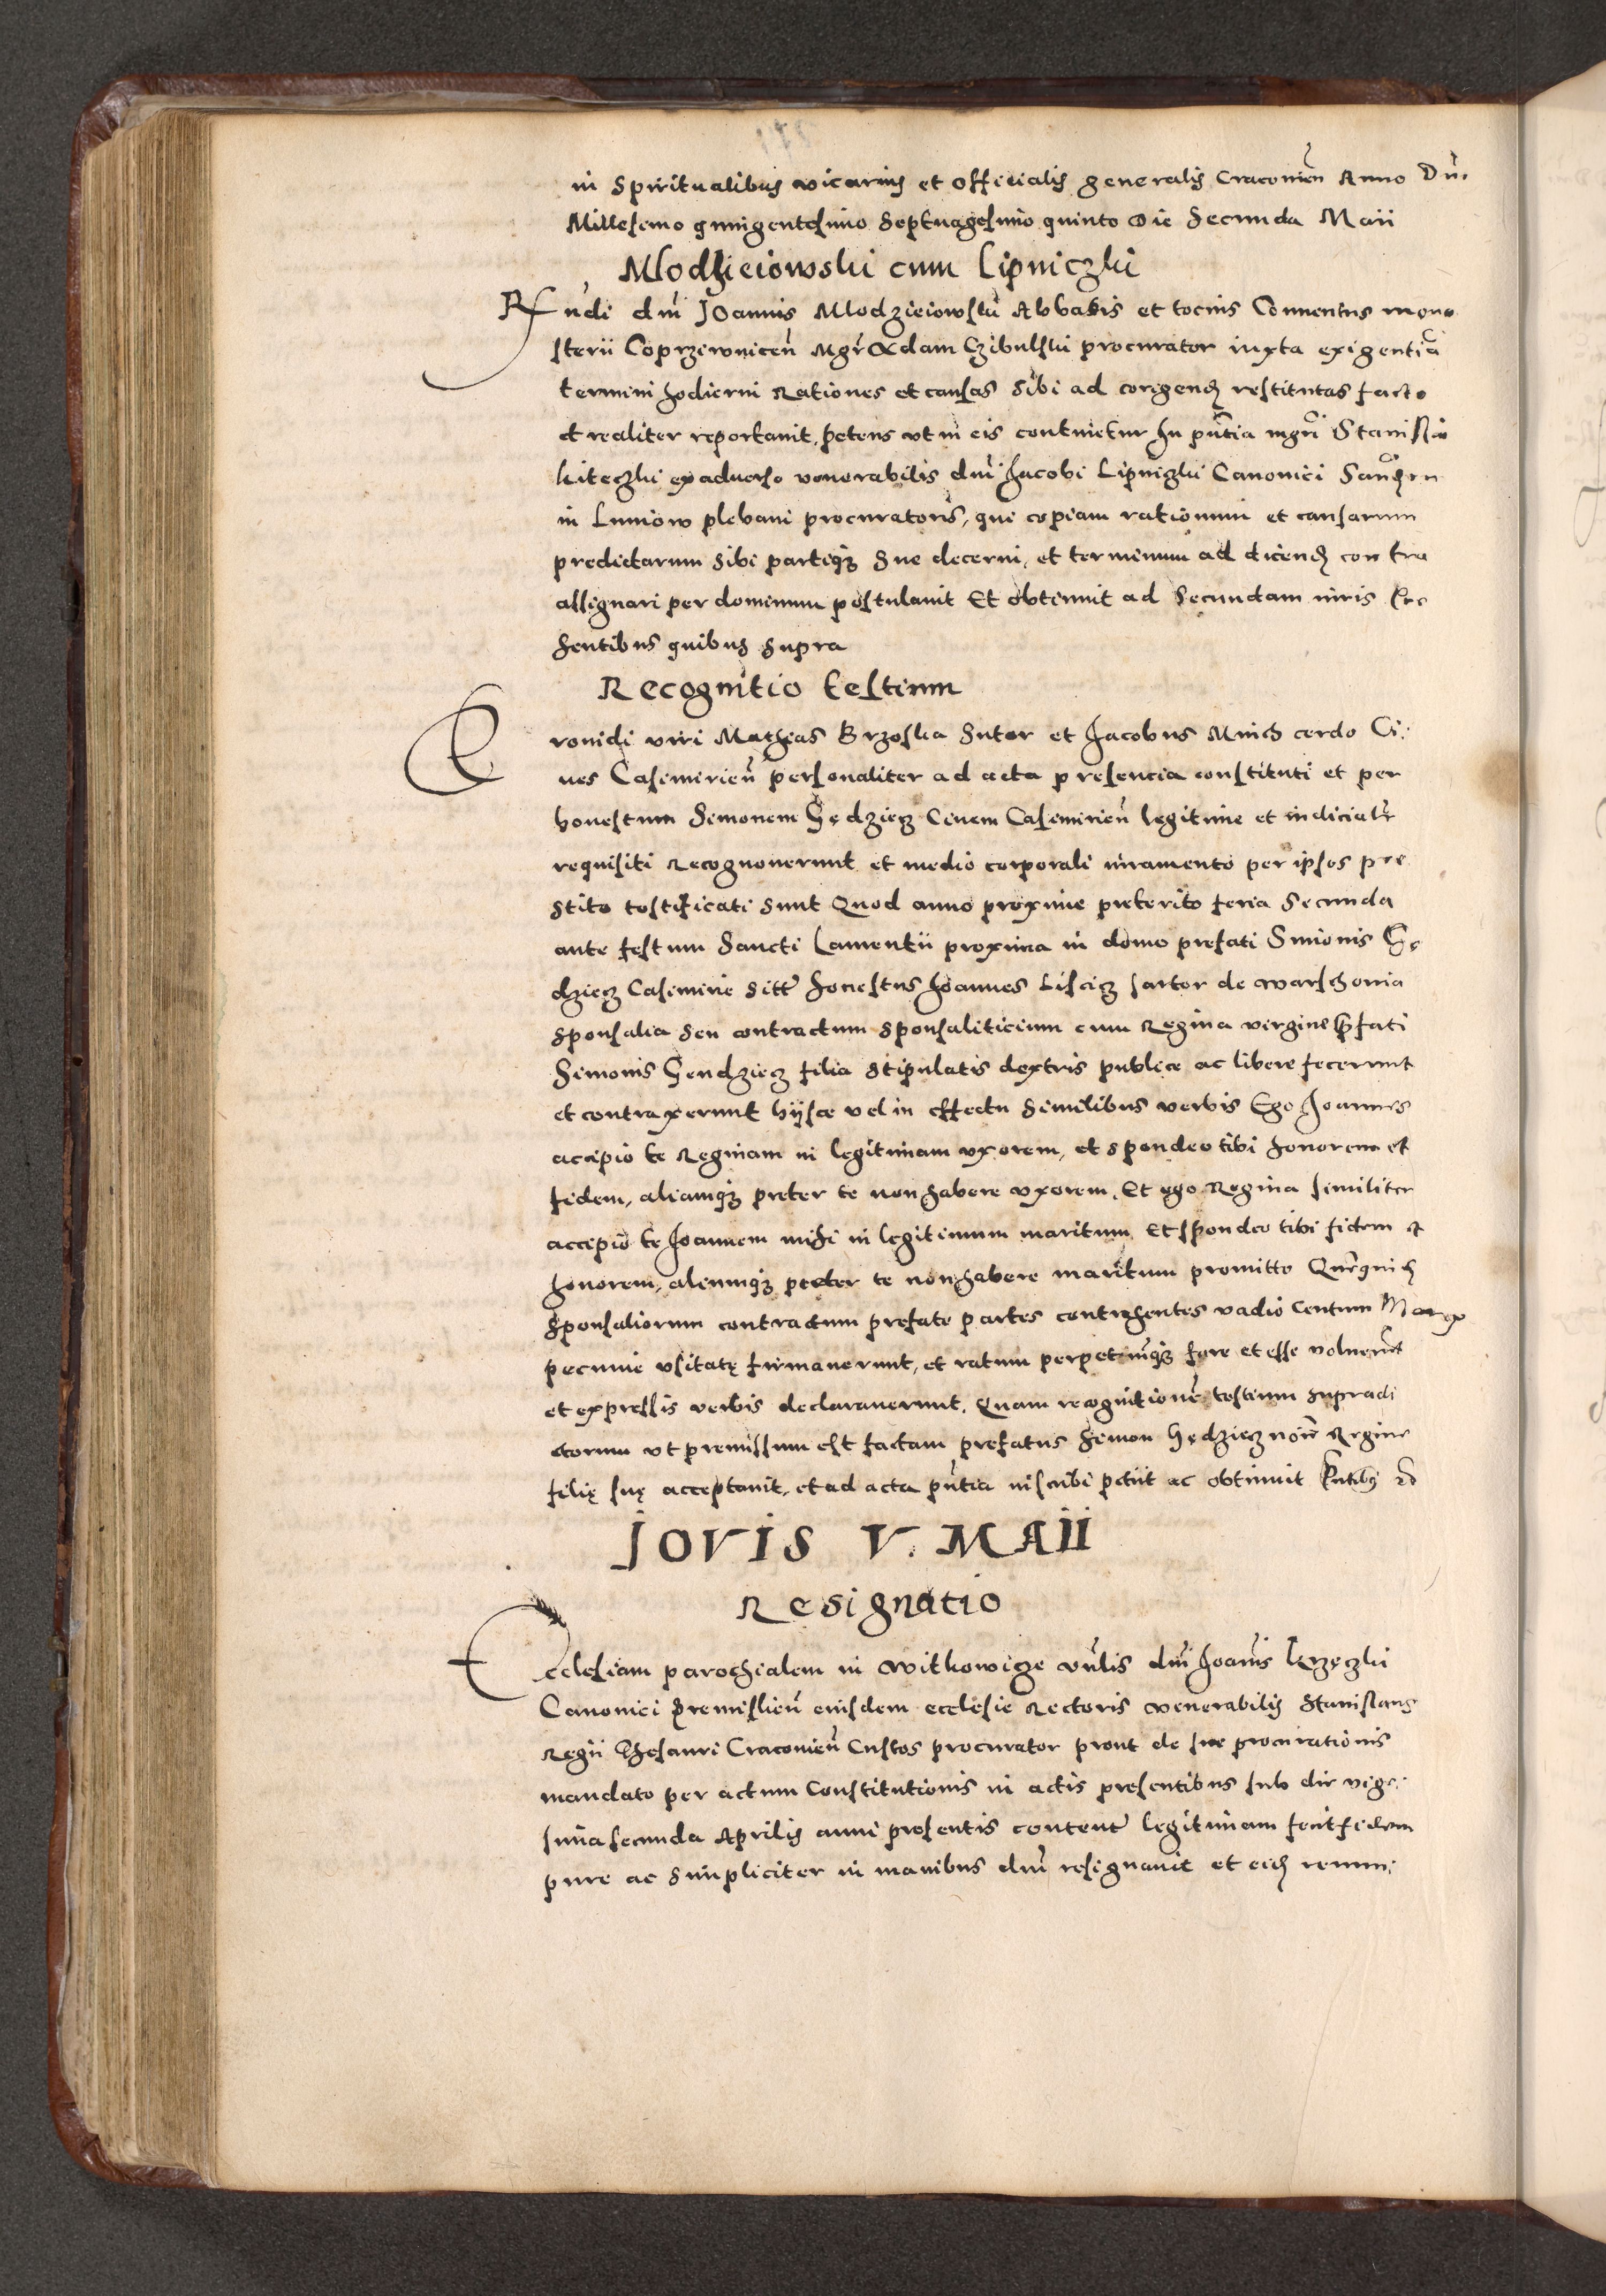 in Spiritualibus vicarius et Officialis generalis Cracovien̄ Anno Dn̄i
Millesimo quingentesimo Septuagesimo quinto Die Secunda Maii
Mlodzieiowski cum Lipniczki
Rn̄di dn̄i Joannis Mlodzieiowski Abbatis et tocius Conuentus mona
sterii Coprziwnicen̄ Mgr̄ Adam Czibulski procurator iuxta exigentiā
termini hodierni Rationes et causas sibi ad corigend restitutas facto
et realiter reportauit, petens vt in eis continetur In pn̄tia mgr̄i Stanislai
Kiteczki ex aduerso venerabilis dn̄i Jacobi Lipniczki Canonici
in plebani procuratoris, qui copiam rationum et causarum
predictarum sibi partiq3 sue decerni, et terminum ad dicend contra
assignari per dominum postulauit Et obtinuit ad Secundam iuris Pre
sentibus quibus supra
Recognitio testium
Prouidi viri Mathias Brzoska Sutor et Jacobus Mnich cerdo Ci:
ues Casimirien̄ personaliter ad acta presencia constituti et per
honestum Simonem Hędziecz Ciuem Casimirien̄ legitime et iudicialr̄
requisiti Recognouerunt et medio corporali iuramento per ipsos pre
stito testificati sunt Quod anno proxime preterito feria Secunda
ante festum Sancti Laurentii proxima in domo prefati Simonis Hę
dziecz Casimirie sitt honestus Joannes Liscicz sartor de Warschouia
sponsalia seu contractum sponsaliticium cum Regina virgine p̄fati
Simonis Hendziecz filia stipulatis dextris publice ac libere fecerunt
et contraxerunt hijsce vel in effectu similibus verbis Ego Joannes
accipio te Reginam in legitimam vxorem, et spondeo tibi honorem et
fidem, aliamq3 preter te non habere vxorem, Et ego Regina similiter
accipio te Joannem mihi in legitimum maritum Et spondeo tibi fidem et
honorem, aliumq3 preter te non habere maritum promitto
Sponsaliorum contractum prefate partes contrahentes vadio Centum Marcar
pecunie vsitatę firmauerunt, et ratum perpetuumq3 fore et esse voluerūt
et expressis verbis declarauerunt, Quam recognitionē testium supradi
ctorum vt premissum est factam prefatus Simon Hędziecz noīe Regine
filię suę acceptauit, et ad acta pn̄tia inscribi petiit ac obtinuit
JOVIS V. MAII
Resignatio
Ecclesiam parochialem in Witkowicze vn̄lis dn̄i Joannis Krzęczki
Canonici Premislien̄ eiusdem ecclesie Rectoris venerabilis Stanislaus
Regii Thesauri Cracovien̄ Custos procurator prout de sue procurationis
mandato per actum Constitutionis in actis presentibus sub die vige:
sima secunda Aprilis anni presentis content̄ legitimam fecit fidem
pure ac simpliciter in manibus dn̄i resignauit et eid renun: